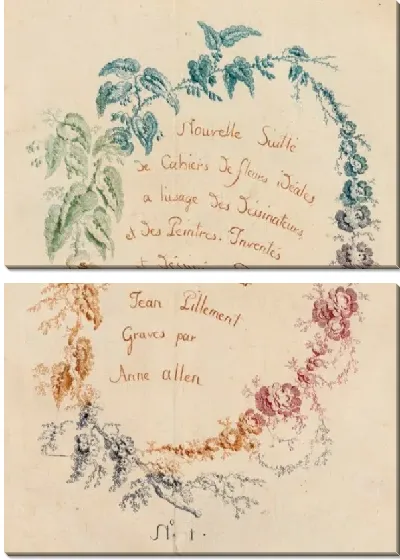 Nouvelle Suitte
de Cahiers de fleurs idéales
a l'usage des dessinateurs
et des Peintres. Inventés
et
Jean Pillement
Graves par
Anne allen
N° 1.